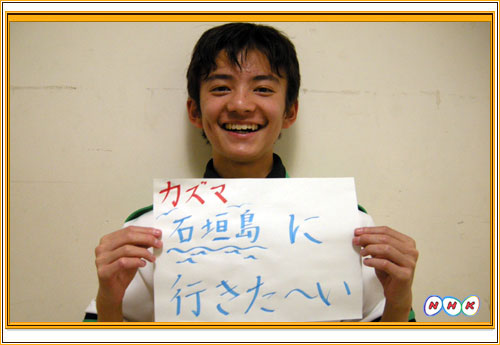 カズマ
石垣島に
行きた〜い
NHK